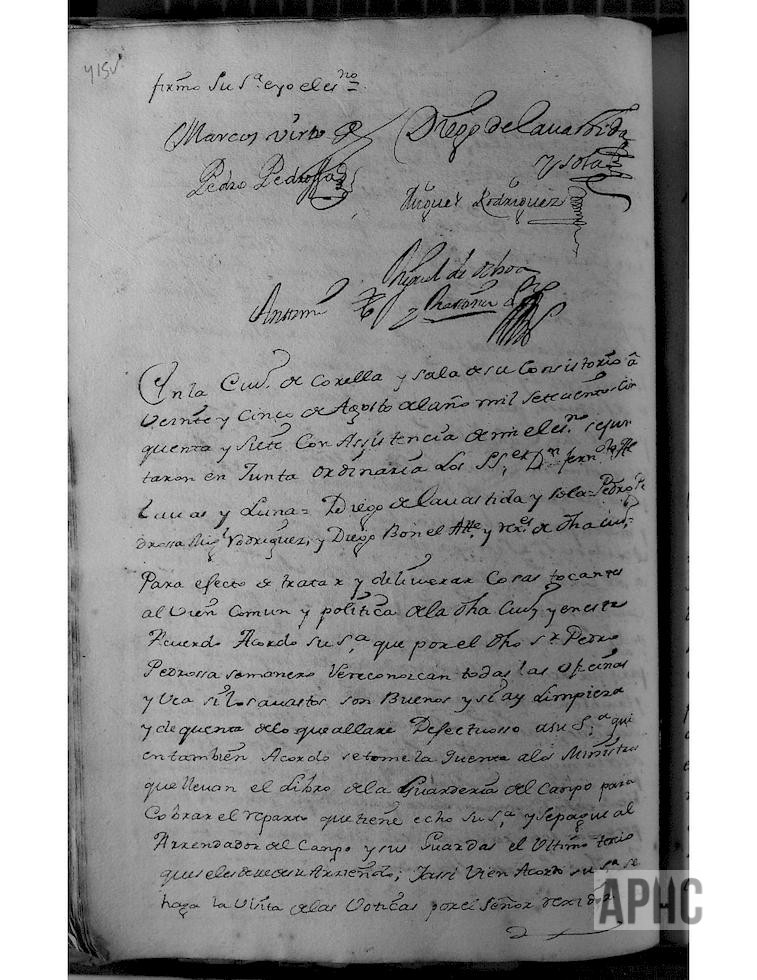 415v
firmo Su Sª. e yo el esno
Marcos Virto Diego de Lauastida
y sola
Pedro Pedrossa
Miguel Rodriguez
Miguel de ochoa
Antemi y
En la Ciud. de Corella y sala de su Consistorio â
Veinte y Cinco de Agosto del año mil Setecientos Cin
quenta y Siete Con Assistencia de mi el esno. se jun
taron en Junta ordinaria Los SSres. Dn ferndo
Luna= Diego de Lauastida y Sola= Pedro Pe
drossa Migl Rodriguez, y Diego Bonel Alle. y rexs. de dha ciud.
Para efecto de tratar y deliuerar Cosas tocantes
al Vien Comun y politica de la dha Ciud. y en este
Acuerdo Acordo su Sª. que por el dho sr. Pedro
Pedrossa semanero Vereconozcan todas las oficinas
y Vea si los auastos son Buenos y si ay Limpieza
y de quenta de lo que allare Defectuosso a su Sª. qui
en tambien Acordo se tome la quenta a los Ministros
que lleuan el Libro de la Guarderia del Campo para
Cobrar el reparto que tiene echo su Sª. y se pague al
Arrendador del Campo y sus Guardas el Ultimo tercio
que se les deue de su Arriendo; Jassi Vien Acordo su Sª. se
haga la Visita de las Voticas por el Señor rexidor
APHC